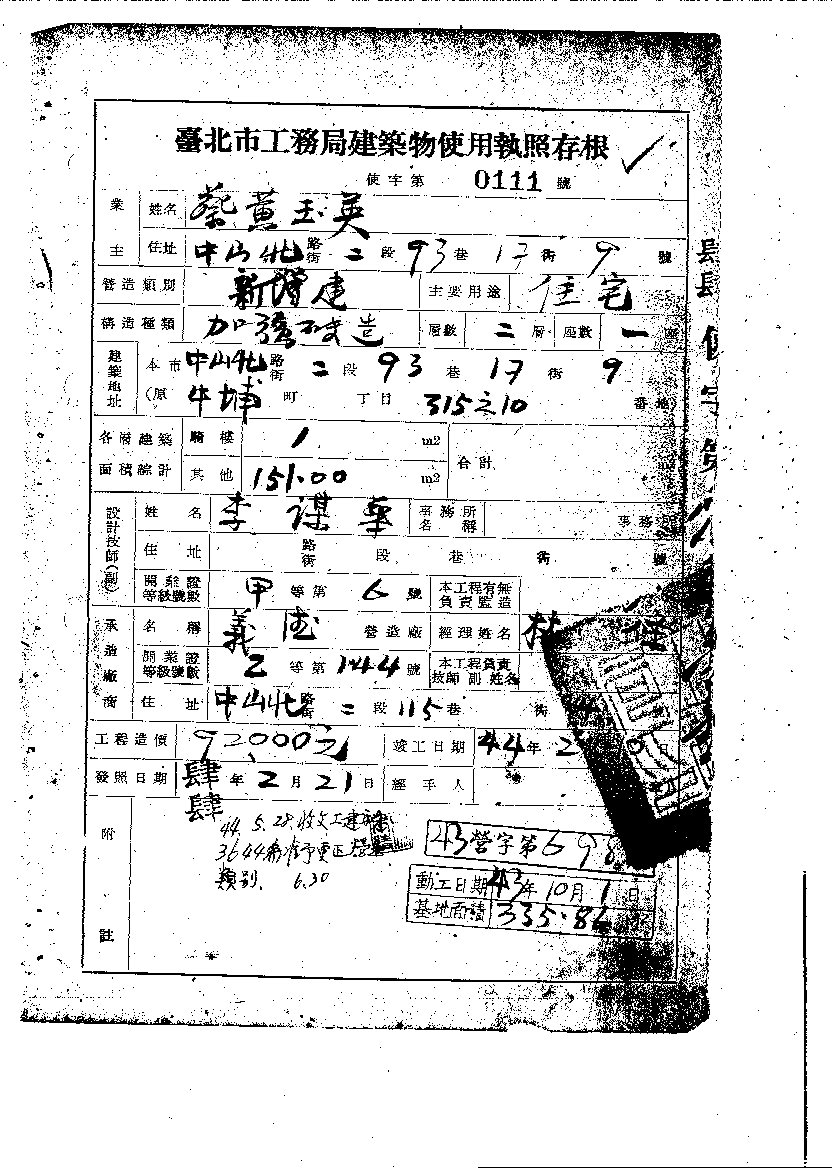 臺北市工務局建築物使用執照存根
使字第 0111 號
業主 姓名 蔡黃玉英
住址 中山北路街 二 段 93 巷 17 街 9 號
營造類別 新增建 主要用途 住宅
構造種類 加強磚造 層數 二 層 座數 一 座
建築地址 本市 中山北路街 二 段 93 巷 17 街 9
(原 牛埔 町 丁目 315之10 番地)
各層建築面積綜計 騎樓 / m2 合計
其他 151.00 m2
設計技師(副) 姓名 李謀華 事務所名稱 事務所
住址 路街 段 巷 街 號
開業證等級號數 甲 等第 6 號 本工程有無負責監造
承造廠商 名稱 義成 營造廠 經理姓名 林
開業證等級號數 乙 等第 144 號 本工程負責技師副姓名
住址 中山北路街 二 段 115 巷 街
工程造價 92000元 竣工日期 44年 2 0日
發照日期 肆肆年 2 月 21 日 經手人
附註
44. 5. 28. 收文工建
3644 准予更正
類別. 6.30
43營字第698
動工日期 43年 10月 1日
基地面積 335.84
肆肆使字第